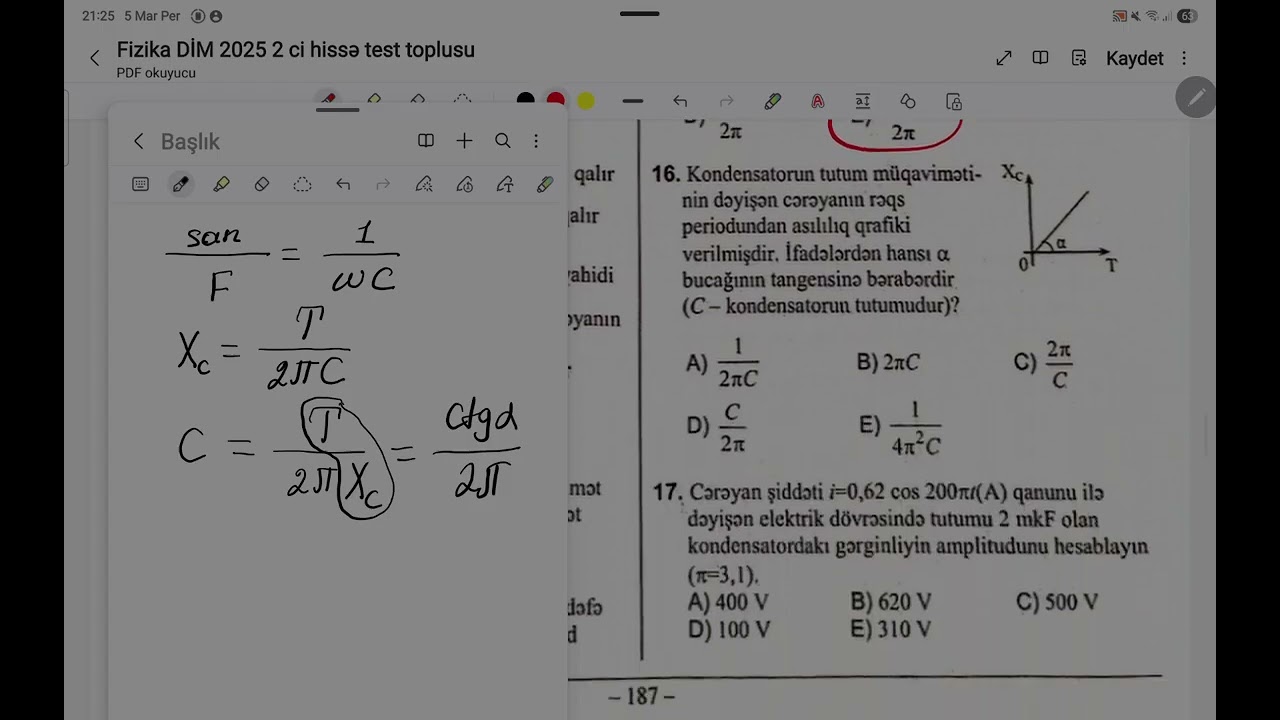 21:25 5 Mar Per
63
Fizika DİM 2025 2 ci hissə test toplusu
PDF okuyucu
Kaydet
Başlık
san/F = 1/ωC
Xc = T/2πC
C = T/2πXc = ctgα/2π
qalır
alır
yahidi
əyanın
mət
ət
dəfə
d
2π
2π
16. Kondensatorun tutum müqaviməti-
nin dəyişən cərəyanın rəqs
periodundan asılılıq qrafiki
verilmişdir. İfadələrdən hansı α
bucağının tangensinə bərabərdir
(C – kondensatorun tutumudur)?
Xc
α
0 T
A) 1/2πC B) 2πC C) 2π/C
D) C/2π E) 1/4π²C
17. Cərəyan şiddəti i=0,62 cos 200πt(A) qanunu ilə
dəyişən elektrik dövrəsində tutumu 2 mkF olan
kondensatordakı gərginliyin amplitudunu hesablayın
(π=3,1).
A) 400 V B) 620 V C) 500 V
D) 100 V E) 310 V
– 187 –